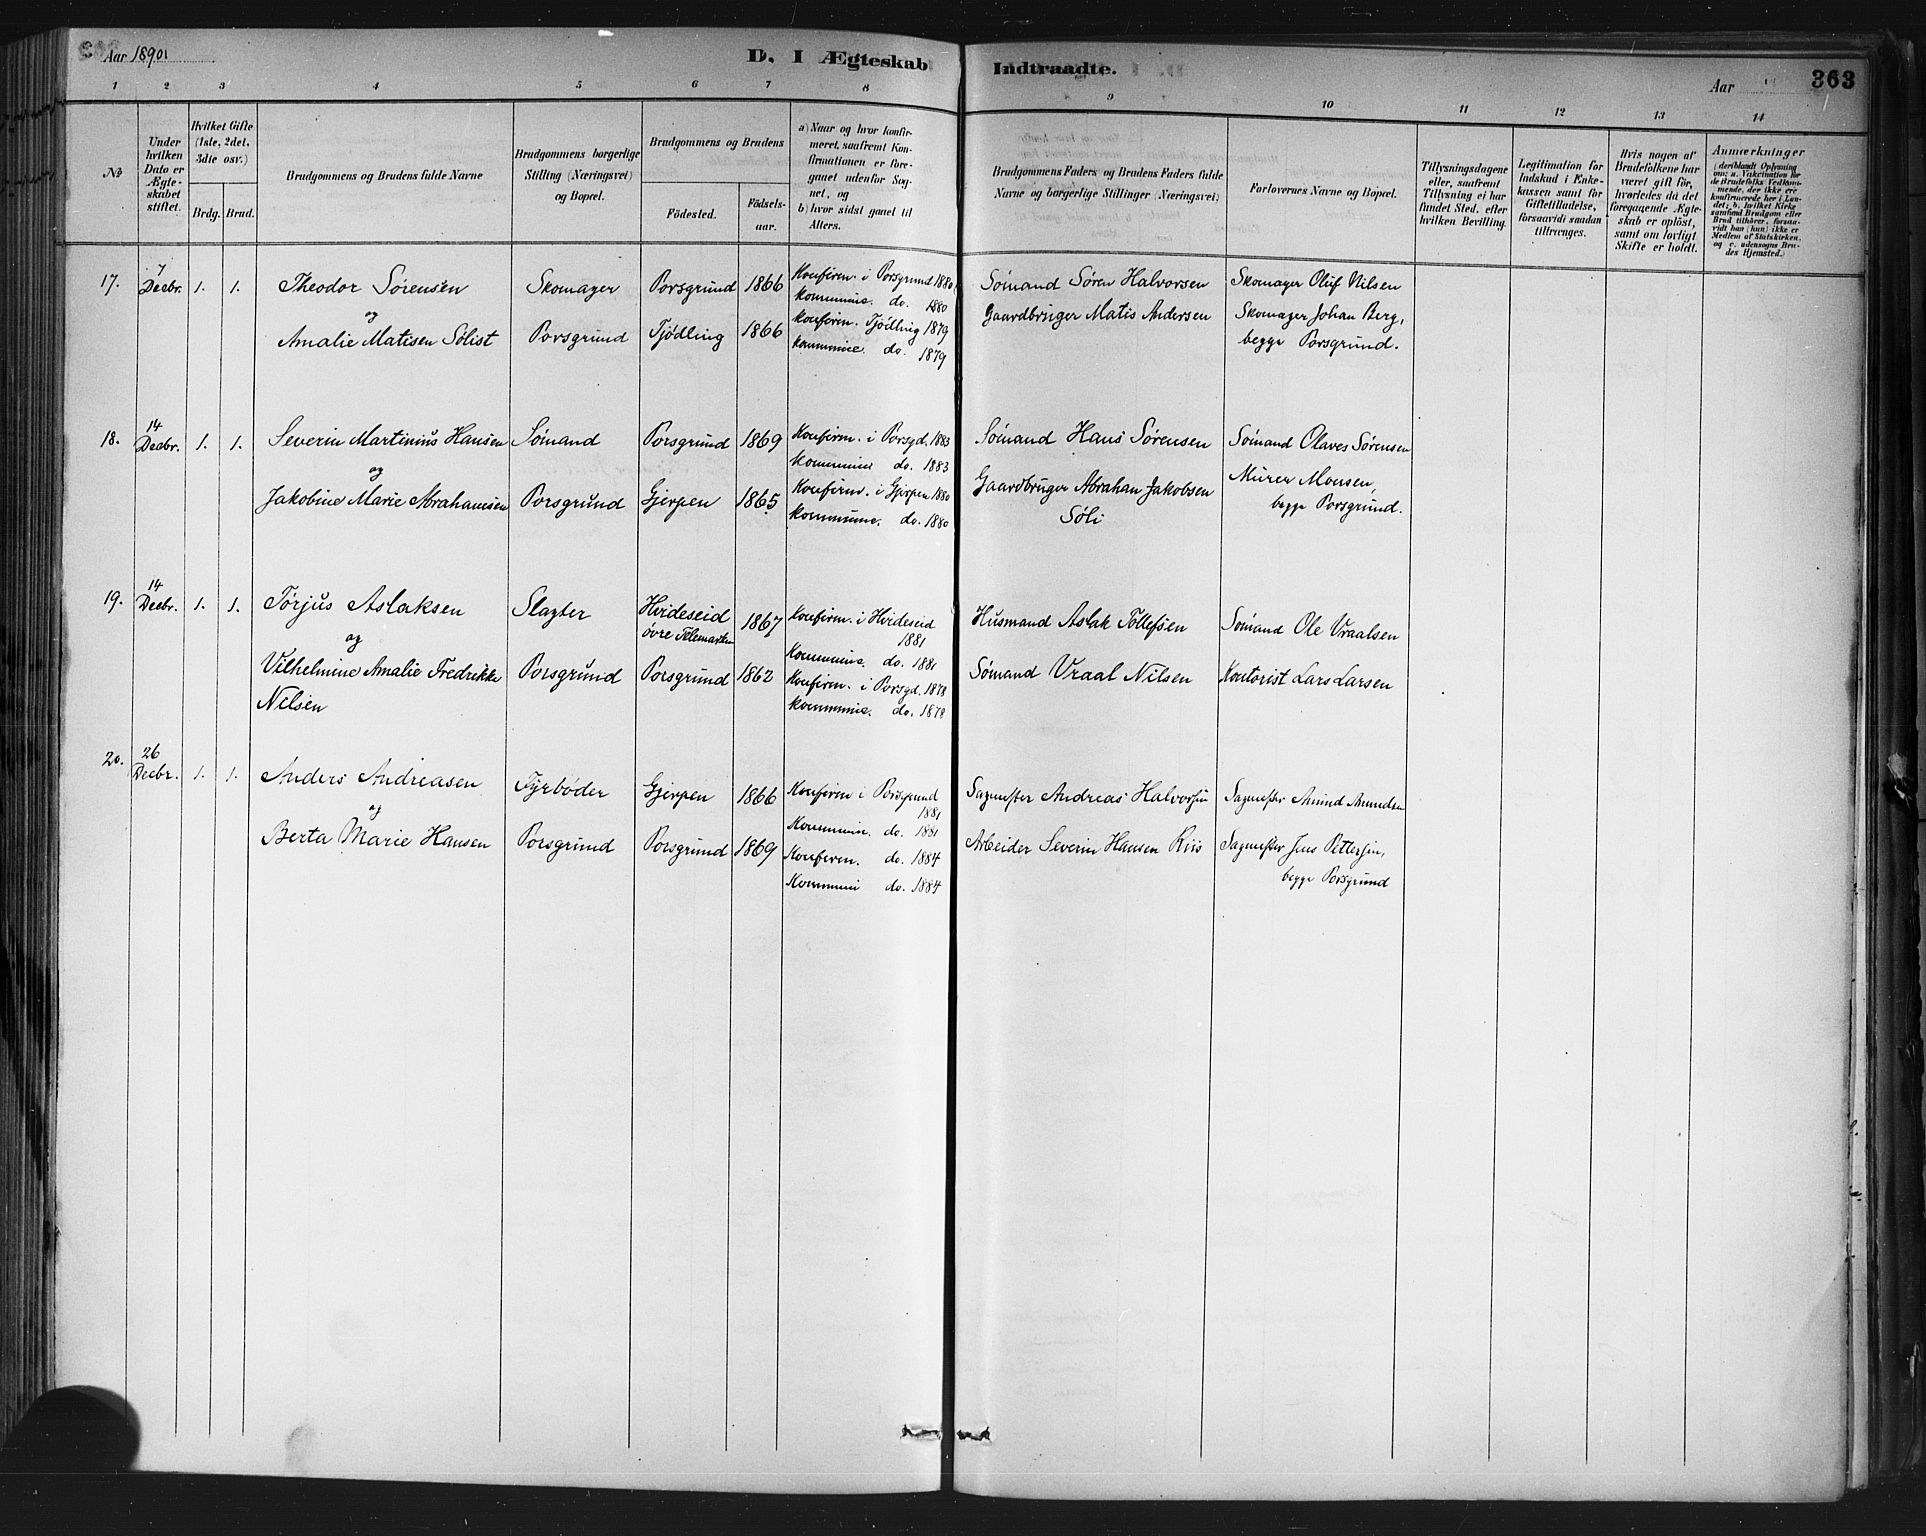 Aar 1890.
D. I Ægteskab Indtraadte.
Aar
363
1 2 3 4 5 6 7 8 9 10 11 12 13 14
No
Under hvilken Dato er Ægteskabet stiftet.
Hvilket Gifte (1ste, 2det, 3die osv.)
Brdg. Brud.
Brudgommens og Brudens fulde Navne
Brudgommens borgerlige Stilling (Næringsvei) og Bopæl.
Brudgommens og Brudens
Födested.
Födselsaar.
a) Naar og hvor konfirmeret, saafremt Konfirmationen er foregaaet udenfor Sognet, og
b) hvor sidst gaaet til Alters.
Brudgommens Faders og Brudens Faders fulde Navne og borgerlige Stillinger (Næringsvei)
Forlovernes Navne og Bopæl.
Tillysningsdagene eller, saafremt Tillysning ei har fundet Sted, efter hvilken Bevilling.
Legitimation for Indskud i Enkekassen samt for Giftetilladelse, forsaavidt saadan tiltrænges.
Hvis nogen af Brudefolkene har været gift før, hvorledes da det foregaaende Ægteskab er oplöst, samt om lovligt Skifte er holdt.
Anmærkninger
17. 7 Decbr. 1. 1.
Theodor Sörensen
og
Amalie Matisen Sölist
Skomager
Porsgrund
Porsgrund 1866
Tjödling 1866
Konfirm. i Porsgrund 1880
Kommunic. do. 1880
Konfirm. Tjödling 1879
Kommunic. do. 1879
Sömand Sören Halvorsen
Gaardbruger Matis Andersen
Skomager Oluf Nilsen
Skomager Johan Berg,
begge Porsgrund.
18. 14 Decbr. 1. 1.
Severin Martinius Hansen
og
Jakobine Marie Abrahamsen
Sömand
Porsgrund
Porsgrund 1869
Gjerpen 1865
Konfirm. i Porsgd. 1883
Kommunic do. 1883
Konfirm. i Gjerpen 1880
Kommunic. do. 1880
Sömand Hans Sörensen
Gaardbruger Abrahan Jakobsen
Söli
Sömand Olaves Sörensen
Murer Monsen,
begge Porsgrund.
19. 14 Decbr. 1. 1.
Törjus Aslaksen
og
Vilhelmine Amalie Fredrikke
Nilsen
Slagter
Porsgrund
Hvideseid
övre Telemarken 1867
Porsgrund 1862
Konfirm. i Hvideseid
1881
Kommunic. do. 1881
Konfirm. i Porsgd. 1878
Kommunic. do. 1878
Husmand Aslak Tollefsen
Sömand Vraal Nilsen
Sömand Ole Vraalsen
Kontorist Lars Larsen
20. 26 Decbr. 1. 1.
Anders Andreasen
og
Berta Marie Hansen
Fyrböder
Porsgrund
Gjerpen 1866
Porsgrund 1869
Konfirm i Porsgrund
1881
Kommunic. do. 1881
Konfirm. do. 1884
Kommuni do. 1884
Sagmester Andreas Halvorsen
Arbeider Severin Hansen Riis
Sagmester Amund Amundsen
Sagmester Jens Pettersen,
begge Porsgrund